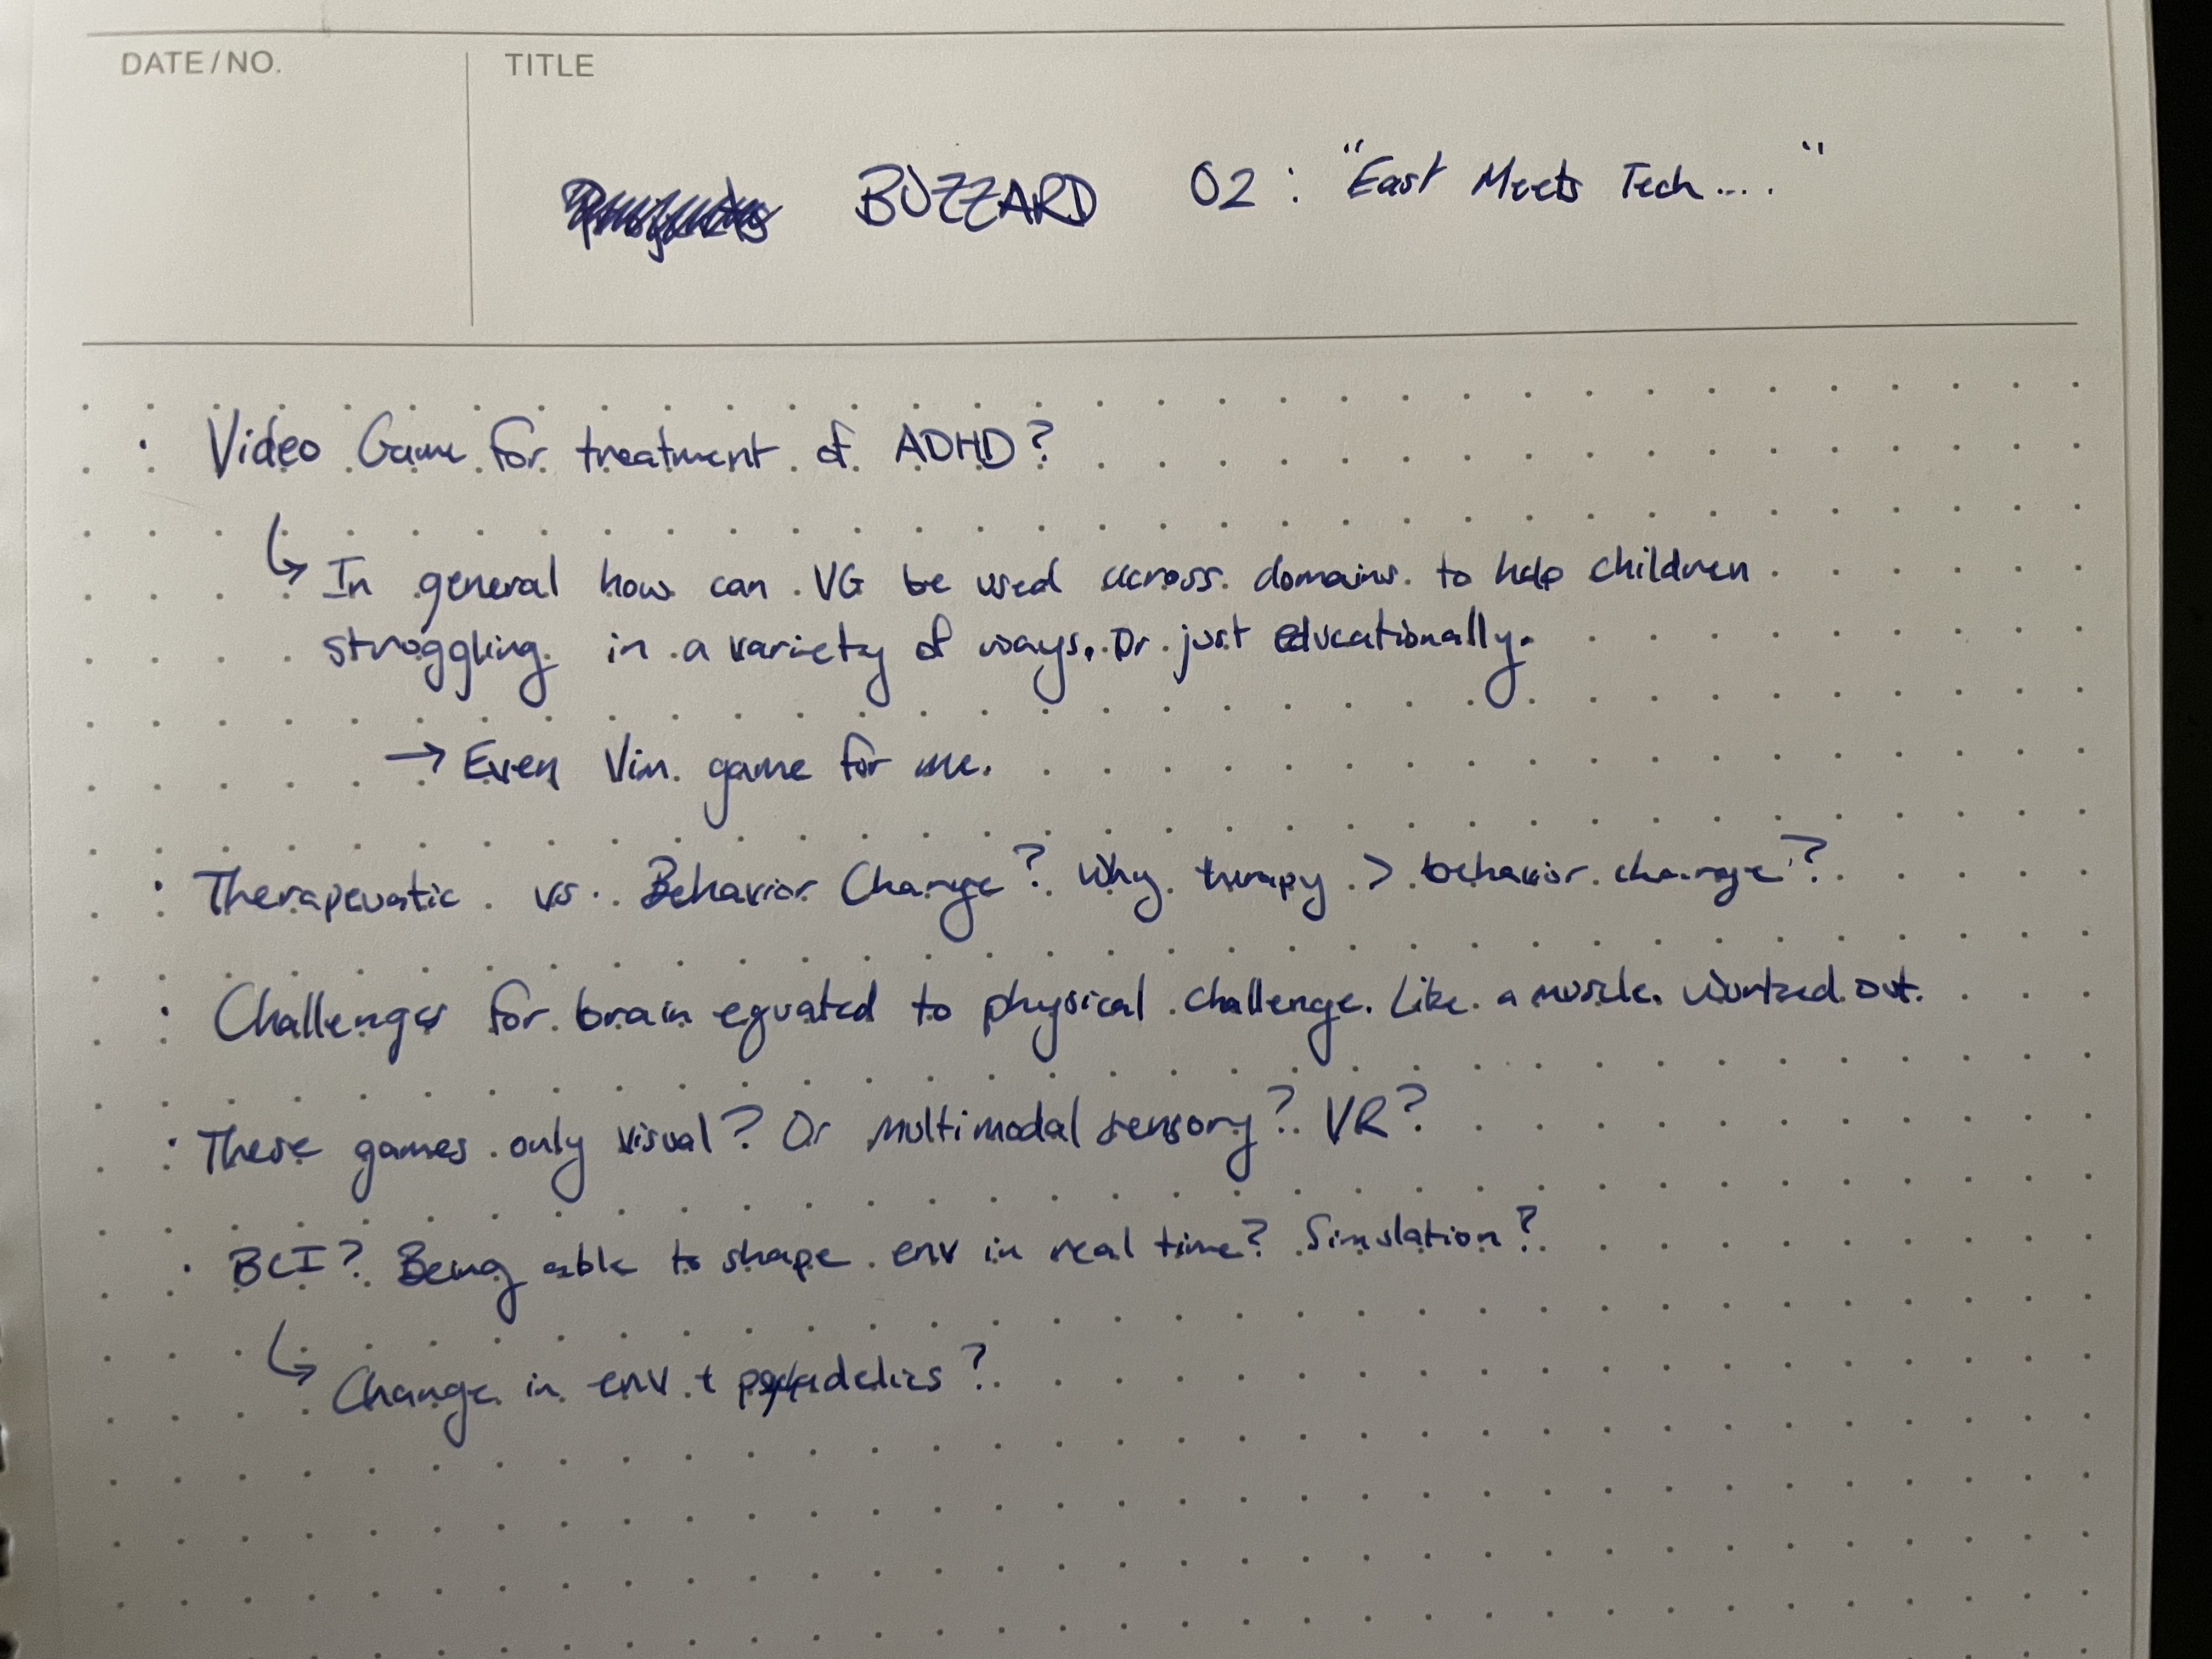 DATE/NO.
TITLE
BUZZARD 02: "East Meets Tech...."
· Video Game for treatment of ADHD?
↳ In general how can VG be used across domains to help children
struggling in a variety of ways. Or just educationally.
→ Even Vim game for me.
· Therapeuatic vs. Behavior Change? Why therapy > behavior change?
· Challenges for brain equated to physical challenge. Like a muscle worked out.
· These games only visual? Or multimodal sensory? VR?
· BCI? Being able to shape env in real time? Simulation?
↳ Change in env + psychadelics?